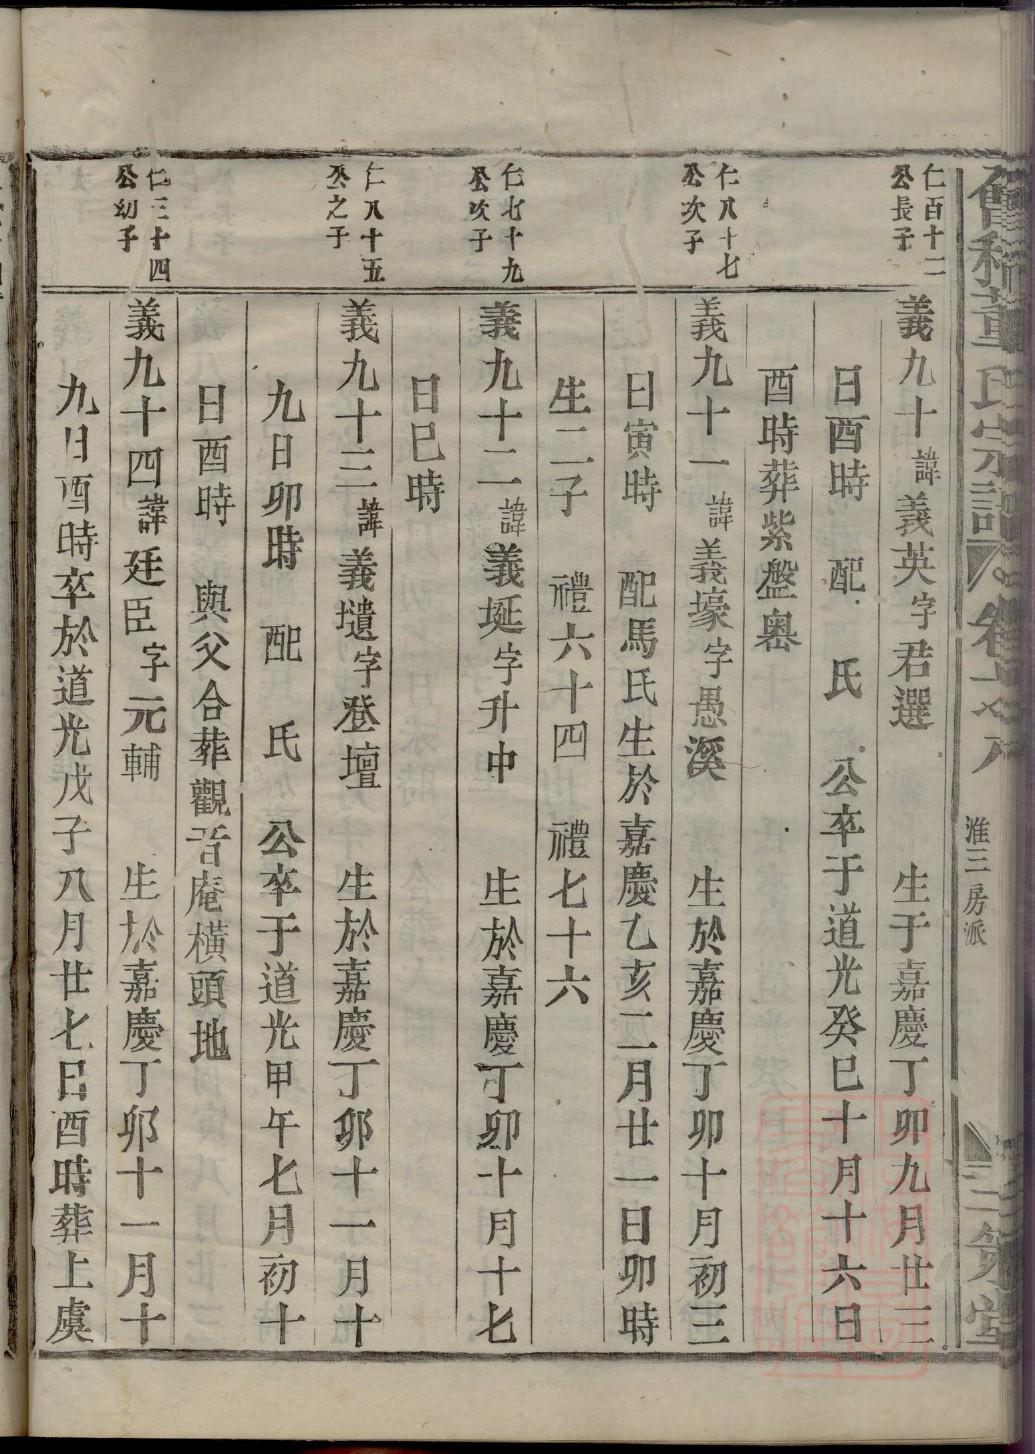 會稽董氏宗譜 卷
淮三房派
三策堂
仁百十二
公長子
義九十諱義英字君選 生于嘉慶丁卯九月廿三
日酉時 配 氏 公卒于道光癸巳十月十六日
酉時葬紫盤奧
仁八十七
公次子
義九十一諱義壕字愚溪 生於嘉慶丁卯十月初三
日寅時 配馬氏生於嘉慶乙亥二月廿一日卯時
生二子 禮六十四 禮七十六
仁七十九
公次子
義九十二諱義埏字升中 生於嘉慶丁卯十月十七
日巳時
仁八十五
公之子
義九十三諱義壝字登壇 生於嘉慶丁卯十一月十
九日卯時 配 氏 公卒于道光甲午七月初十
日酉時 與父合葬觀音庵橫頭地
仁三十四
公幼子
義九十四諱廷臣字元輔 生於嘉慶丁卯十一月十
九日酉時卒於道光戊子八月廿七日酉時葬上虞